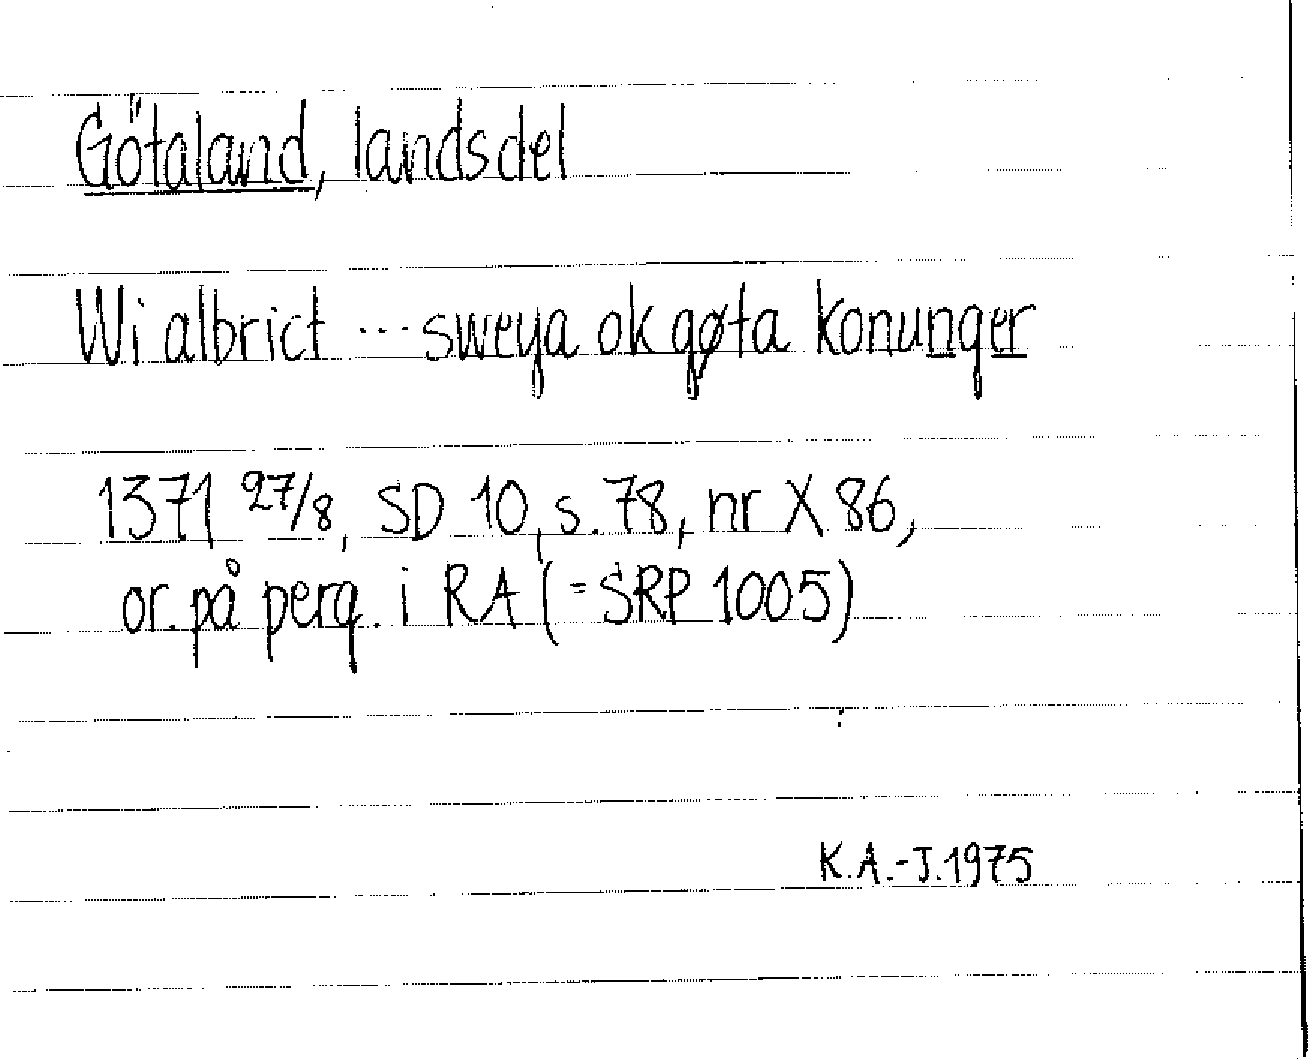 Götaland, landsdel
Wi albrict ... sweya ok gøta konunger
1371 27/8, SD 10, s. 78, nr X 86,
or. på perg. i RA (=SRP 1005)
K.A.-J. 1975